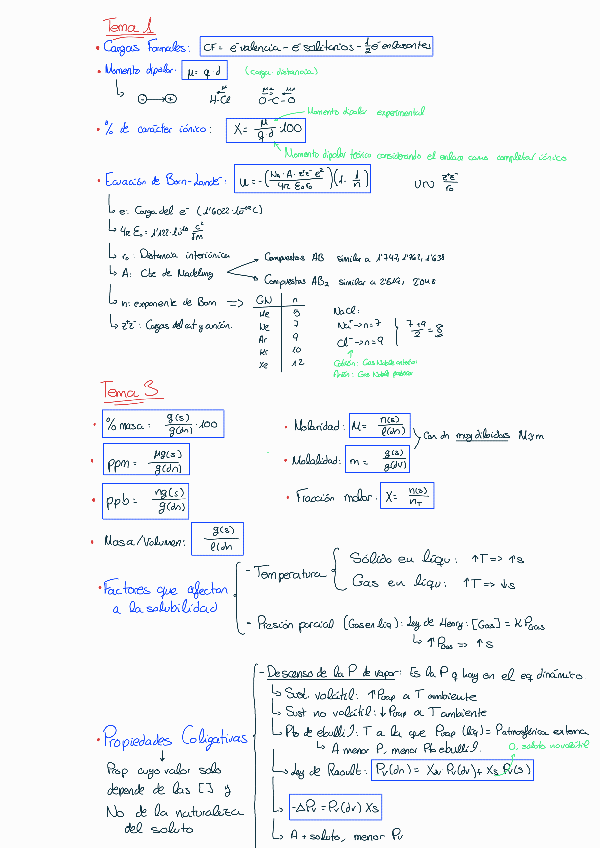 Tema 1
• Cargas Formales: CF = e⁻valencia - e⁻solitarios - 1/2 e⁻enlazantes
• Momento dipolar: μ = q·d (carga·distancia)
H-Cl O-C-O
Momento dipolar experimental
• % de carácter iónico: X = μ/q·d · 100
Momento dipolar teórico considerando el enlace como completam iónico
• Ecuación de Born-Landé: U = -(Na·A·z⁺z⁻e²/4π ε₀r₀)(1-1/n) U∝ z⁺z⁻/r₀
e: Carga del e⁻ (1'6022·10⁻¹⁹C)
4π ε₀ = 1'112·10⁻¹⁰ C²/Jm
r₀: Distancia interiónica
A: Cte de Madelung
Compuestos AB similar a 1'747, 1'762, 1'638
Compuestos AB₂ similar a 2'519,
n: exponente de Born => GN n
He 5
Ne 7
Ar 9
Kr 10
Xe 12
NaCl:
Na⁺→n=7
Cl⁻→n=9
7+9/2 = 8
z⁺z⁻: Cargas del cat y anión.
Catión: Gas Noble anterior
Anión: Gas Noble posterior
Tema 3
• % masa: g(s)/g(dn) · 100
• Molaridad: M = n(s)/l(dn)
• ppm = μg(s)/g(dn)
• Molalidad: m = g(s)/g(dv)
Con dn muy diluidas M≈m
• ppb = ng(s)/g(dn)
• Fracción molar: X = n(s)/nT
• Masa/Volumen: g(s)/l(dn
• Factores que afectan
a la solubilidad
- Temperatura
Sólido en líqu: ↑T => ↑s
Gas en líqu: ↑T => ↓s
- Presión parcial (Gas en líq): Ley de Henry: [Gas] = K PGas
↑PGas => ↑s
• Propiedades Coligativas
Prop cuyo valor solo
depende de las [ ] y
No de la naturaleza
del soluto
- Descenso de la P de vapor: Es la P q hay en el eq dinámico
Sust. volátil: ↑Pvap a T ambiente
Sust no volátil: ↓Pvap a T ambiente
Pto de ebullil: T a la que Pvap (líq) = Patmosférica externa
A menor P, menor Pto ebullil.
0 soluto no volátil
Ley de Raoult: Pv(dn) = Xdv Pv(dv) + Xs Pv(s)
-ΔPv = Pv(dv) Xs
A + soluto, menor Pv